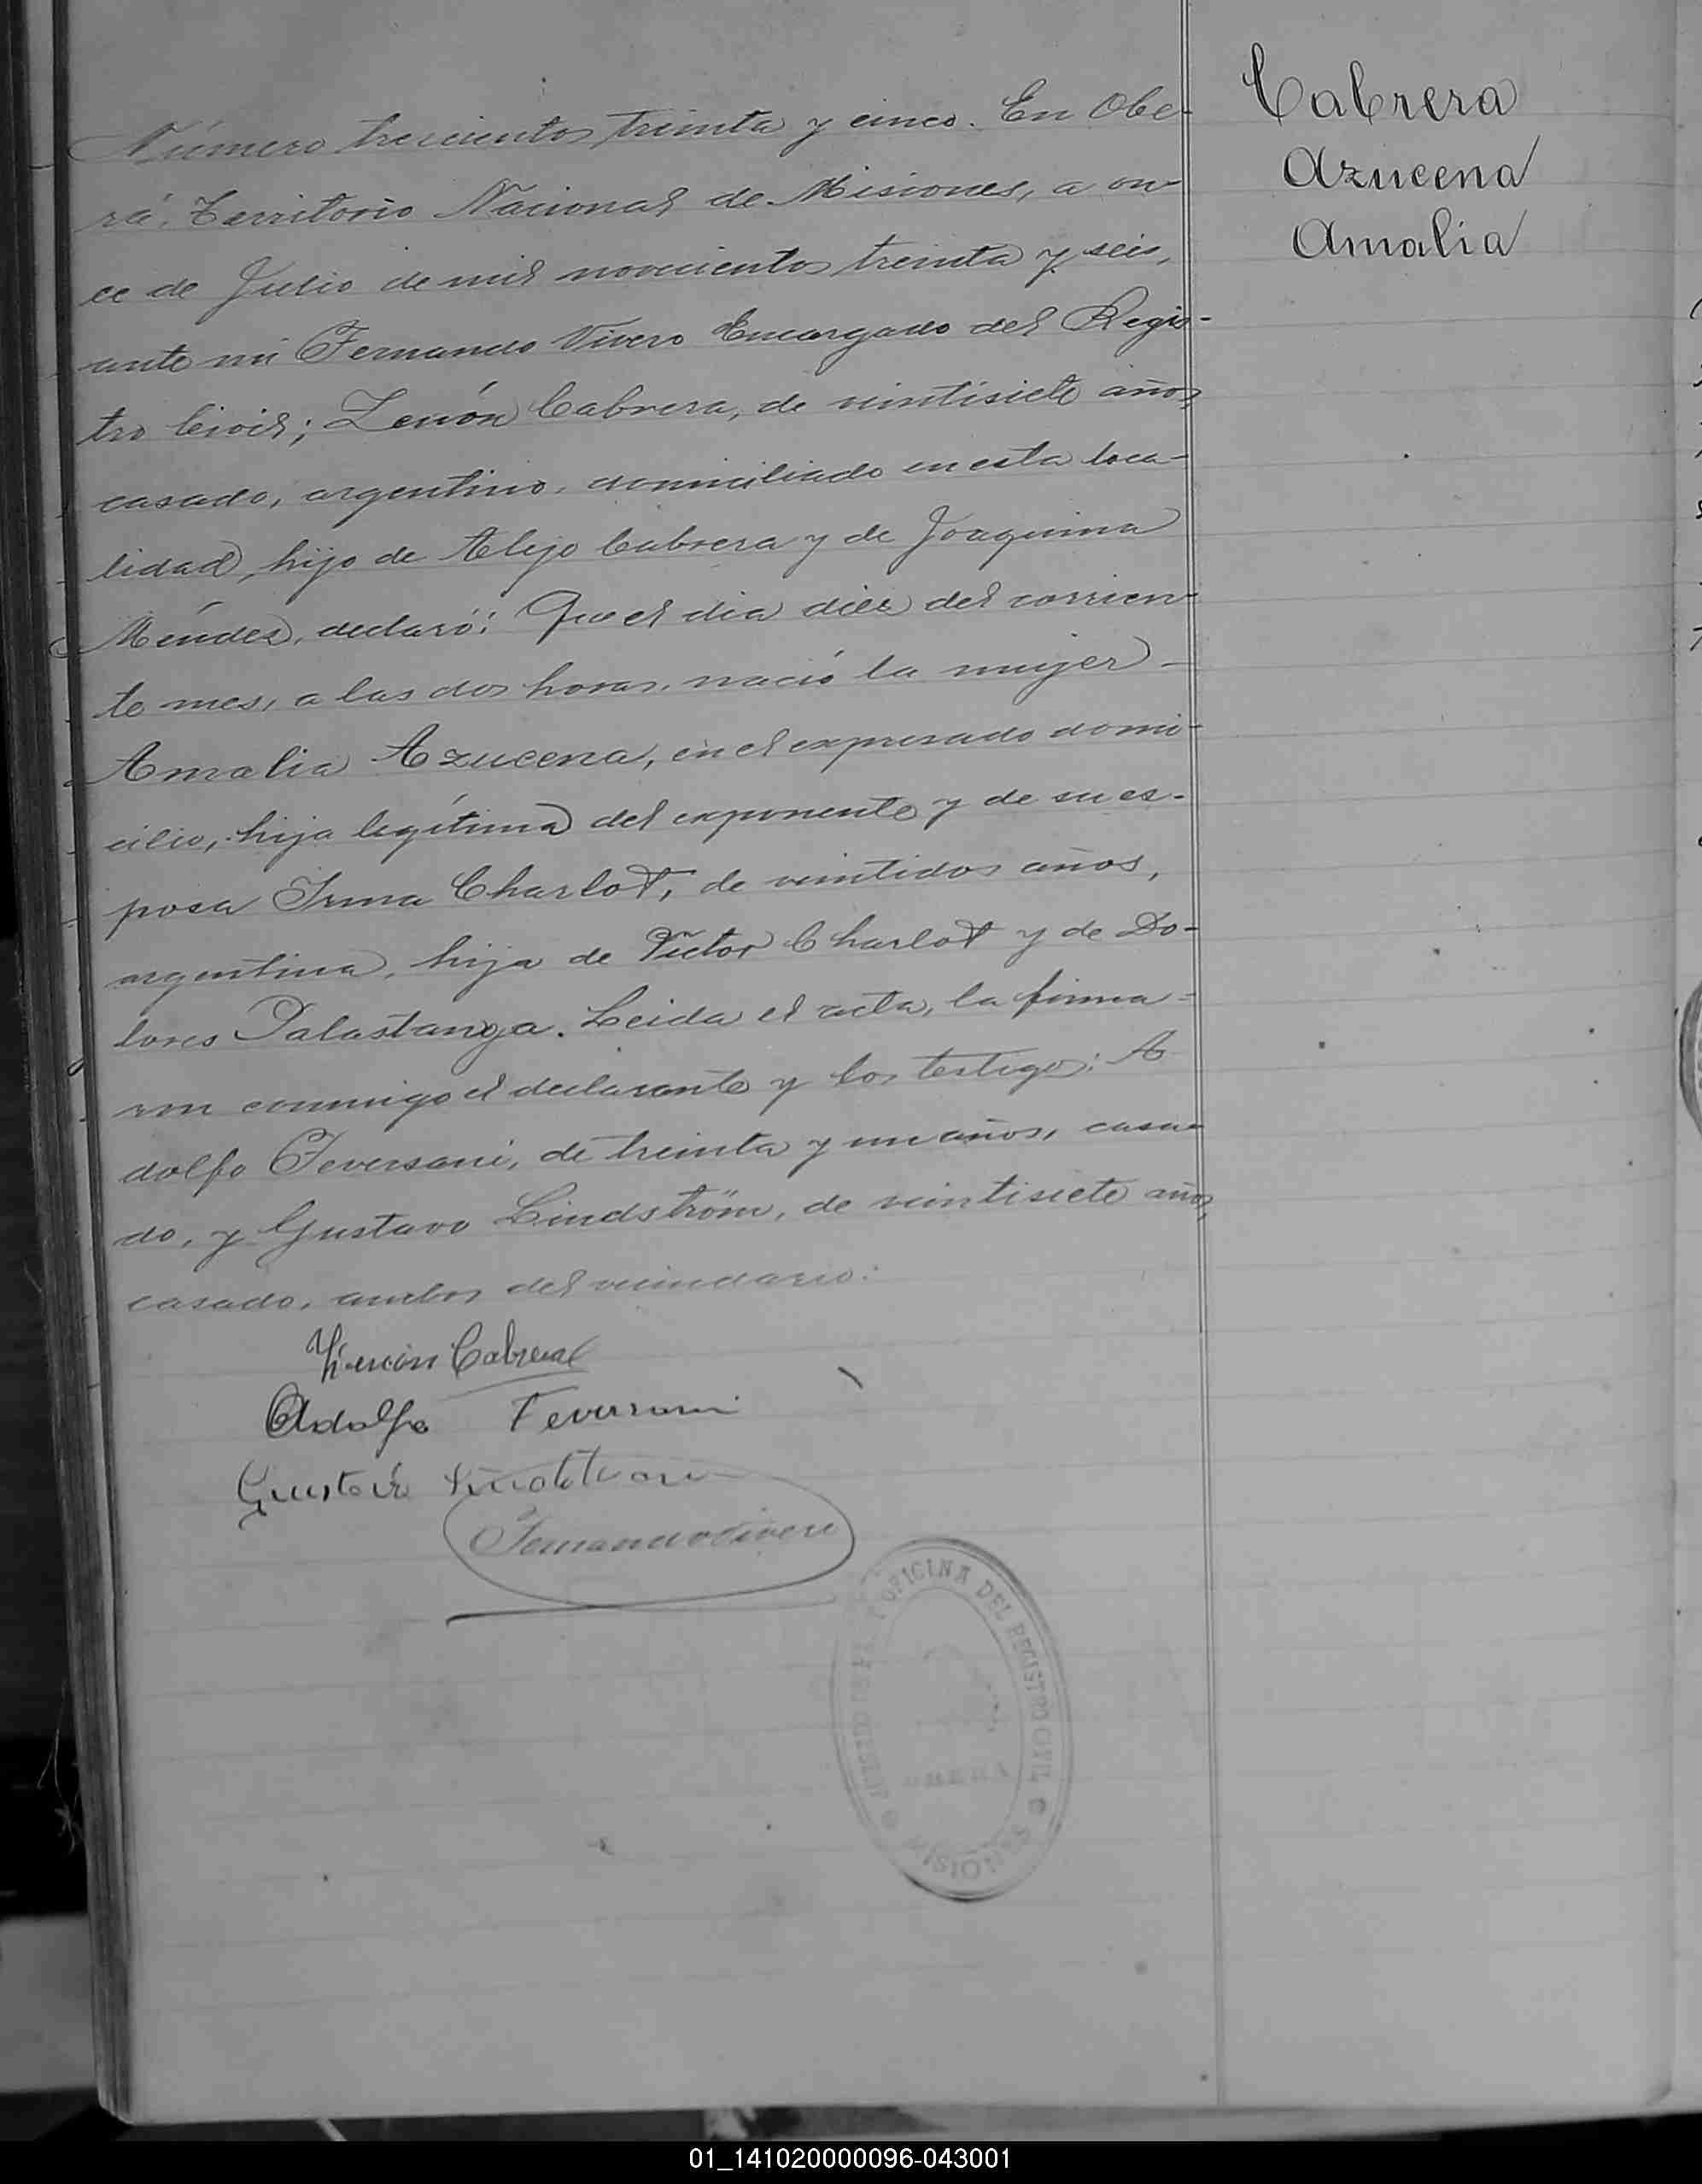 Cabrera
Azucena
Amalia
Número trescientos treinta y cinco. En Obe-
rá, Territorio Nacional de Misiones, a on-
ce de Julio de mil novecientos treinta y seis,
ante mí Fernando Vivero Encargado del Regis-
tro Civil; Zenón Cabrera, de veintisiete años,
casado, argentino, domiciliado en esta loca-
lidad, hijo de Alejo Cabrera y de Joaquina
Méndez, declaró: Que el día diez del corrien-
te mes, a las dos horas, nació la mujer -
Amalia Azucena, en el expresado domi-
cilio, hija legítima del exponente y de su es-
posa Irma Charlot, de veintidos años,
argentina, hija de Víctor Charlot y de Do-
lores Palastanga. Leida el acta, la firma-
ron conmigo el declarante y los testigos: A
dolfo Feversani, de treinta y un años, casa-
do, y Gustavo Lindström, de veintisiete años,
casado, ambos del vecindario.
Zenón Cabrera
Adolfo Feversani
Gustavo Lindström
Fernando Vivero
OFICINA DEL REGISTRO CIVIL
JUZGADO DE PAZ
OBERA
MISIONES
01_141020000096-043001